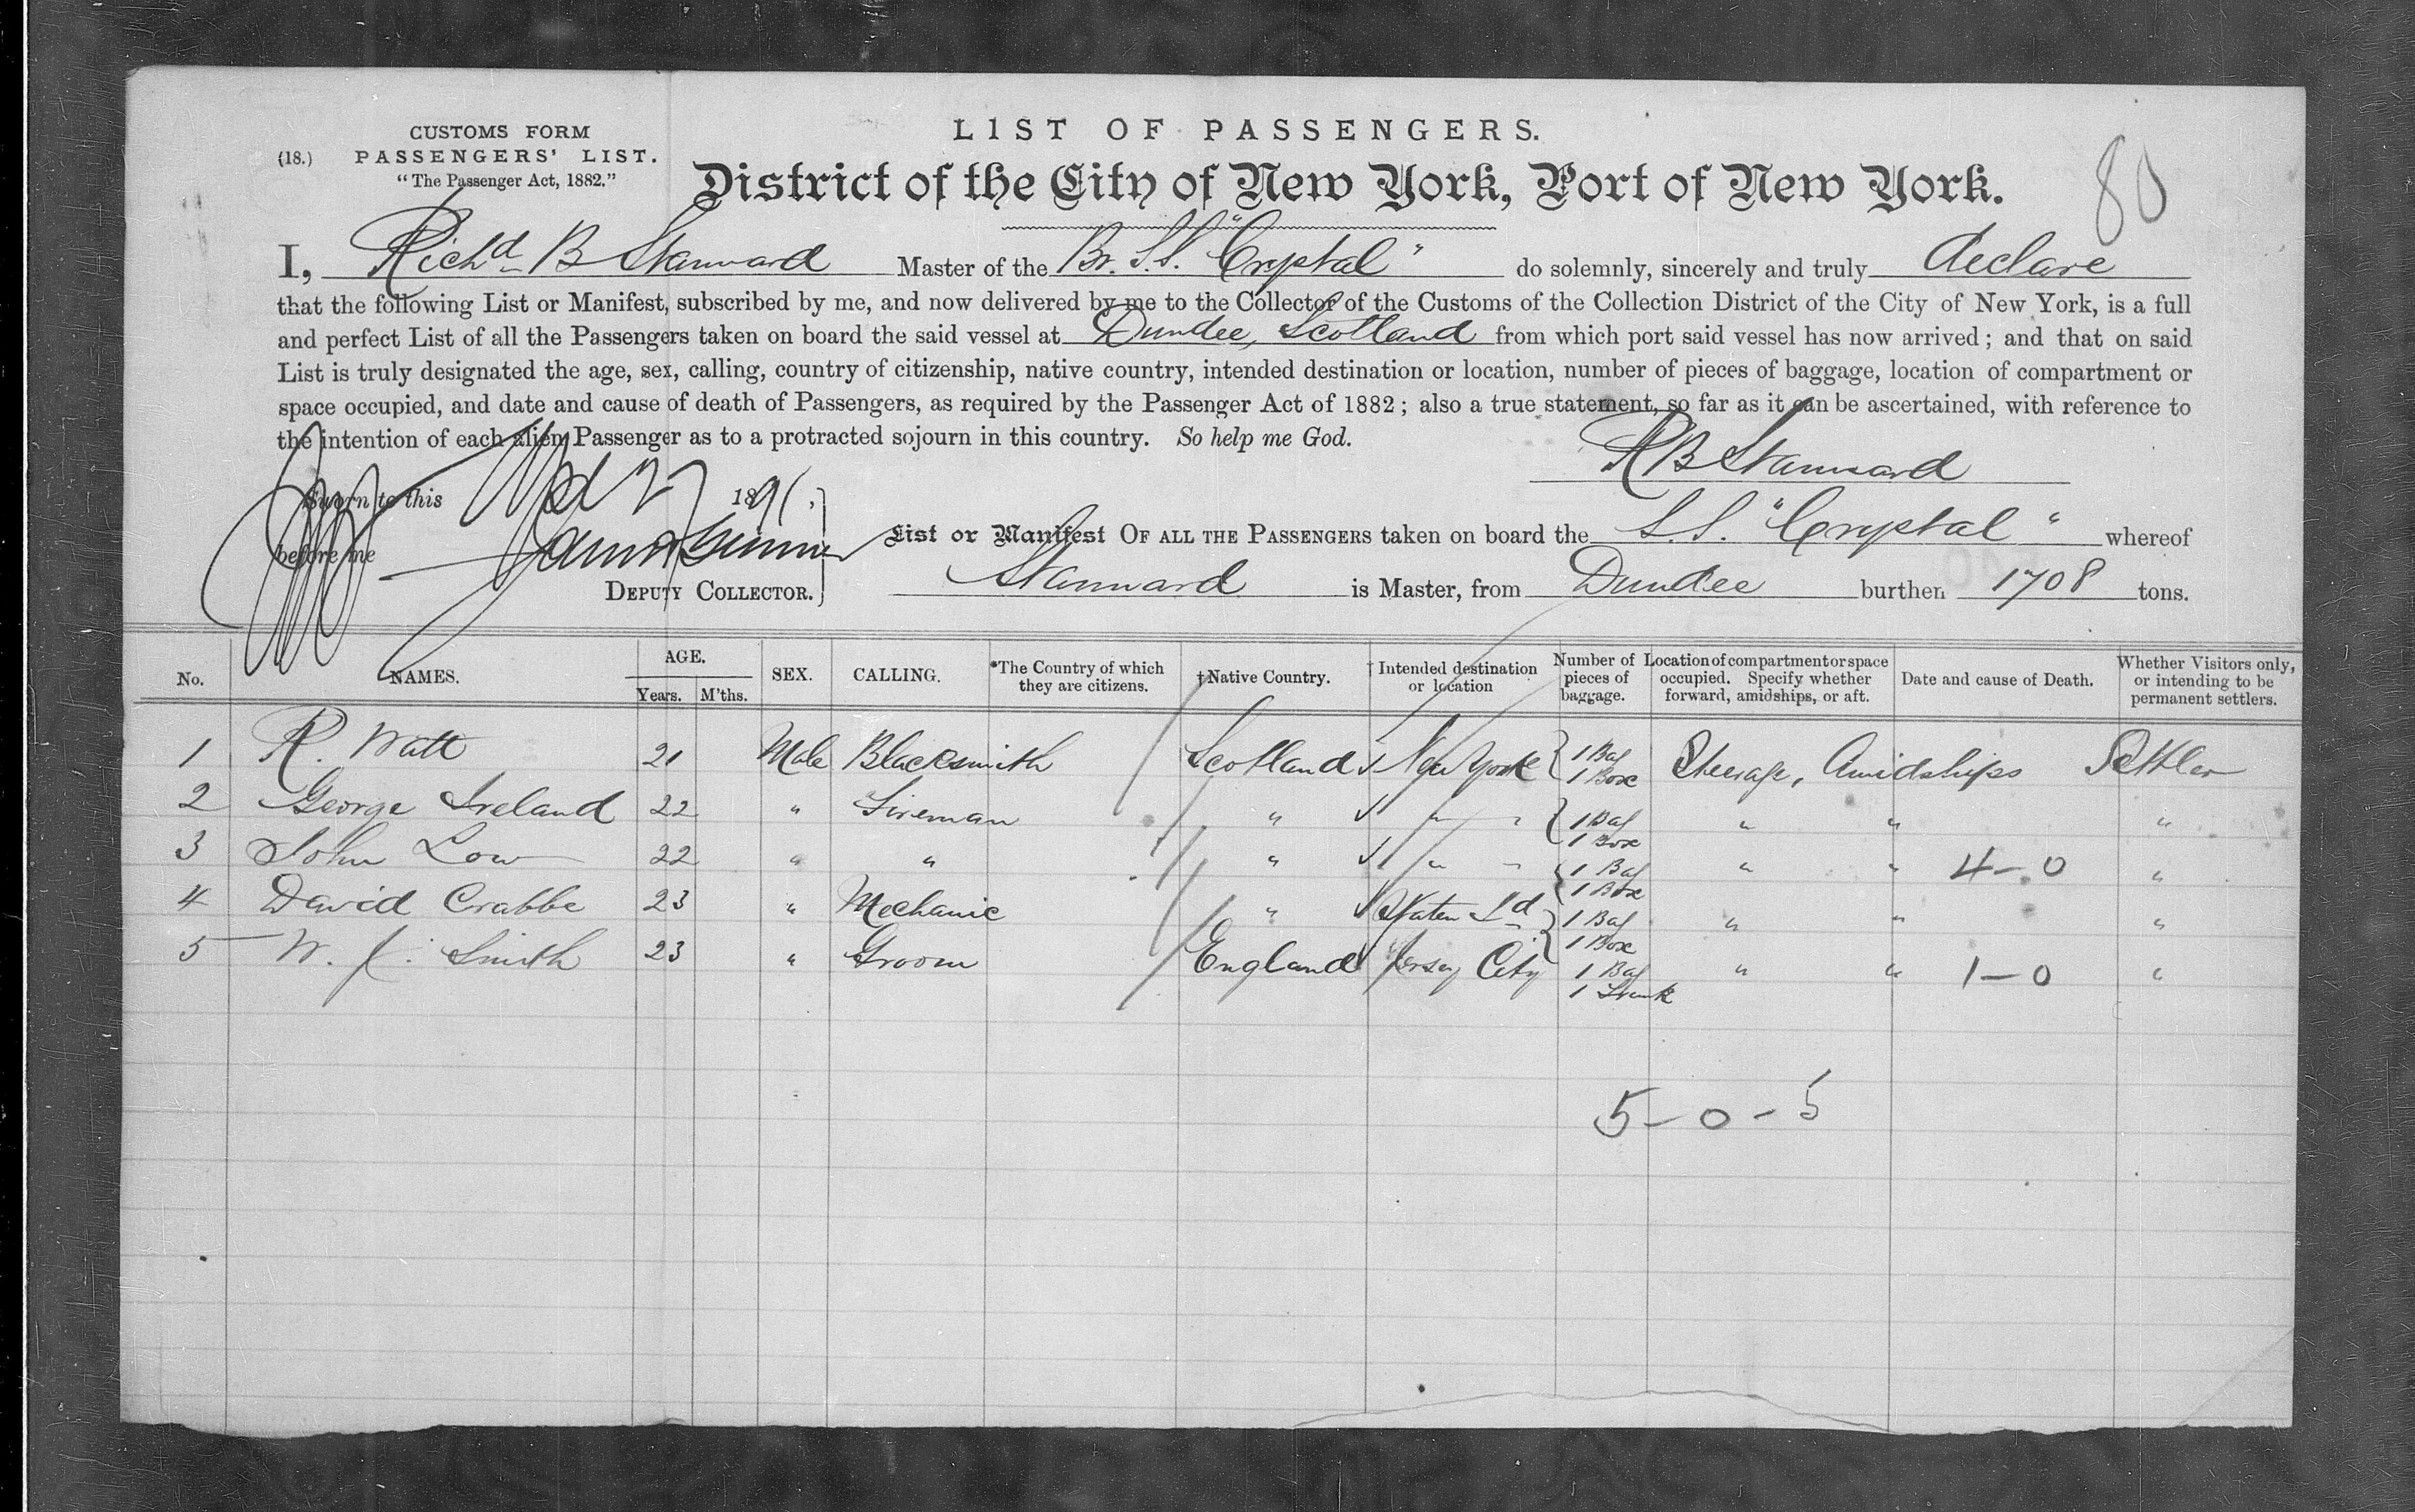 CUSTOMS FORM
(18.) PASSENGERS' LIST.
"The Passenger Act, 1882."
LIST OF PASSENGERS.
District of the City of New York, Port of New York.
80
I, Richd B Stannard Master of the Br. S.S. "Crystal" do solemnly, sincerely and truly declare
that the following List or Manifest, subscribed by me, and now delivered by me to the Collector of the Customs of the Collection District of the City of New York, is a full
and perfect List of all the Passengers taken on board the said vessel at Dundee, Scotland from which port said vessel has now arrived; and that on said
List is truly designated the age, sex, calling, country of citizenship, native country, intended destination or location, number of pieces of baggage, location of compartment or
space occupied, and date and cause of death of Passengers, as required by the Passenger Act of 1882; also a true statement, so far as it can be ascertained, with reference to
the intention of each alien Passenger as to a protracted sojourn in this country. So help me God.
R B Stannard
Sworn to this 1891,
before me
DEPUTY COLLECTOR.
List or Manifest OF ALL THE PASSENGERS taken on board the S.S. "Crystal" whereof
Stannard is Master, from Dundee burthen 1708 tons.
No. NAMES. AGE. Years. M'ths. SEX. CALLING. *The Country of which they are citizens. †Native Country. † Intended destination or location Number of pieces of baggage. Location of compartment or space occupied. Specify whether forward, amidships, or aft. Date and cause of Death. Whether Visitors only, or intending to be permanent settlers.
1 R. Watt 21 Male Blacksmith Scotland New York 1 Bag 1 Box Steerage, Amidships Settler
2 George Ireland 22 " Fireman " " " 1 Bag 1 Box " " "
3 John Low 22 " " " " " 1 Bag 1 Box " " 4-0 "
4 David Crabbe 23 " Mechanic " Staten Id 1 Bag 1 Box " " "
5 W. J. Smith 23 " Groom England Jersey City 1 Bag 1 Trunk " " 1-0 "
5-0-5